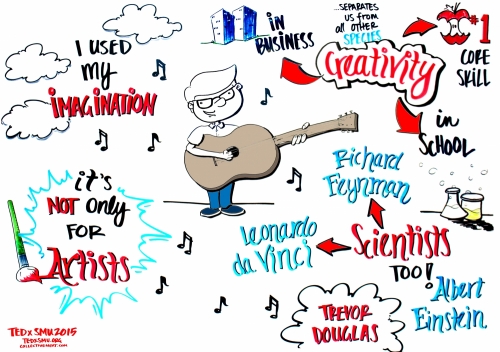 I USED
my
IMAGINATION
IN
BUSINESS
...SEPARATES
US FROM
all OTHER
SPECIES
Creativity
#1
CORE
SKILL
in
SCHOOL
it's
NOT only
FOR
Artists
Richard
Feynman
Leonardo
da Vinci
Scientists
TOO!
Albert
Einstein
TREVOR
DOUGLAS
TEDxSMU2015
TEDXSMU.ORG